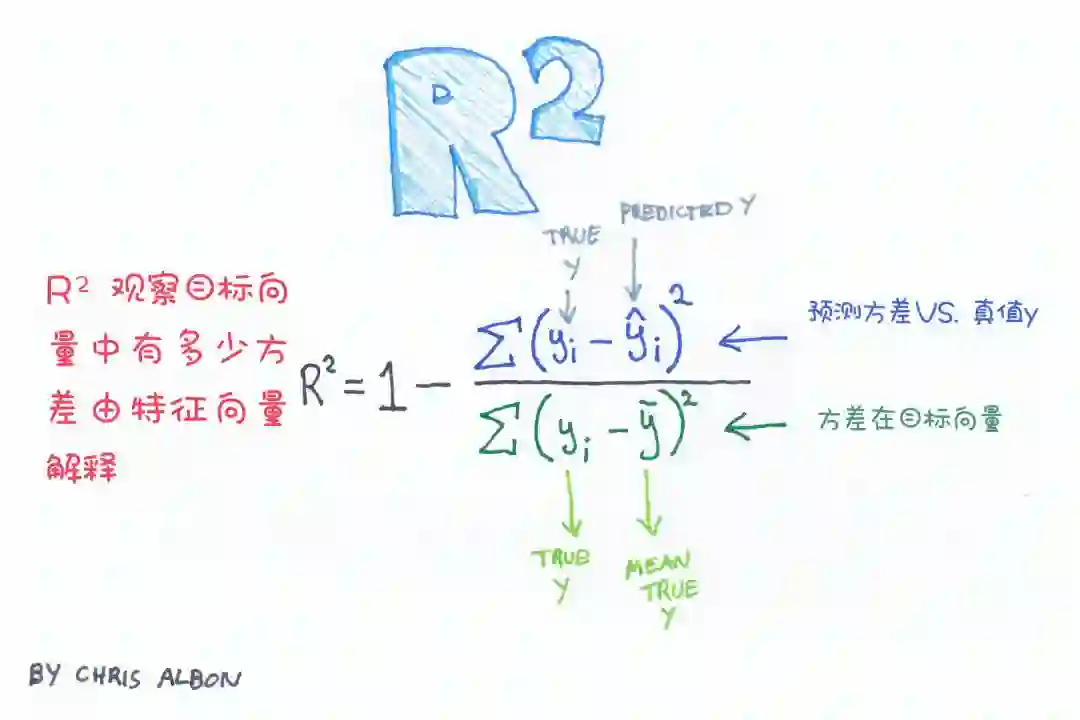 R²
TRUE
Y
PREDICTED Y
R² 观察目标向
量中有多少方
差由特征向量
解释
R² = 1 − ∑(yᵢ − ŷᵢ)² / ∑(yᵢ − ȳ)²
预测方差VS. 真值y
方差在目标向量
TRUE
Y
MEAN
TRUE
Y
BY CHRIS ALBON